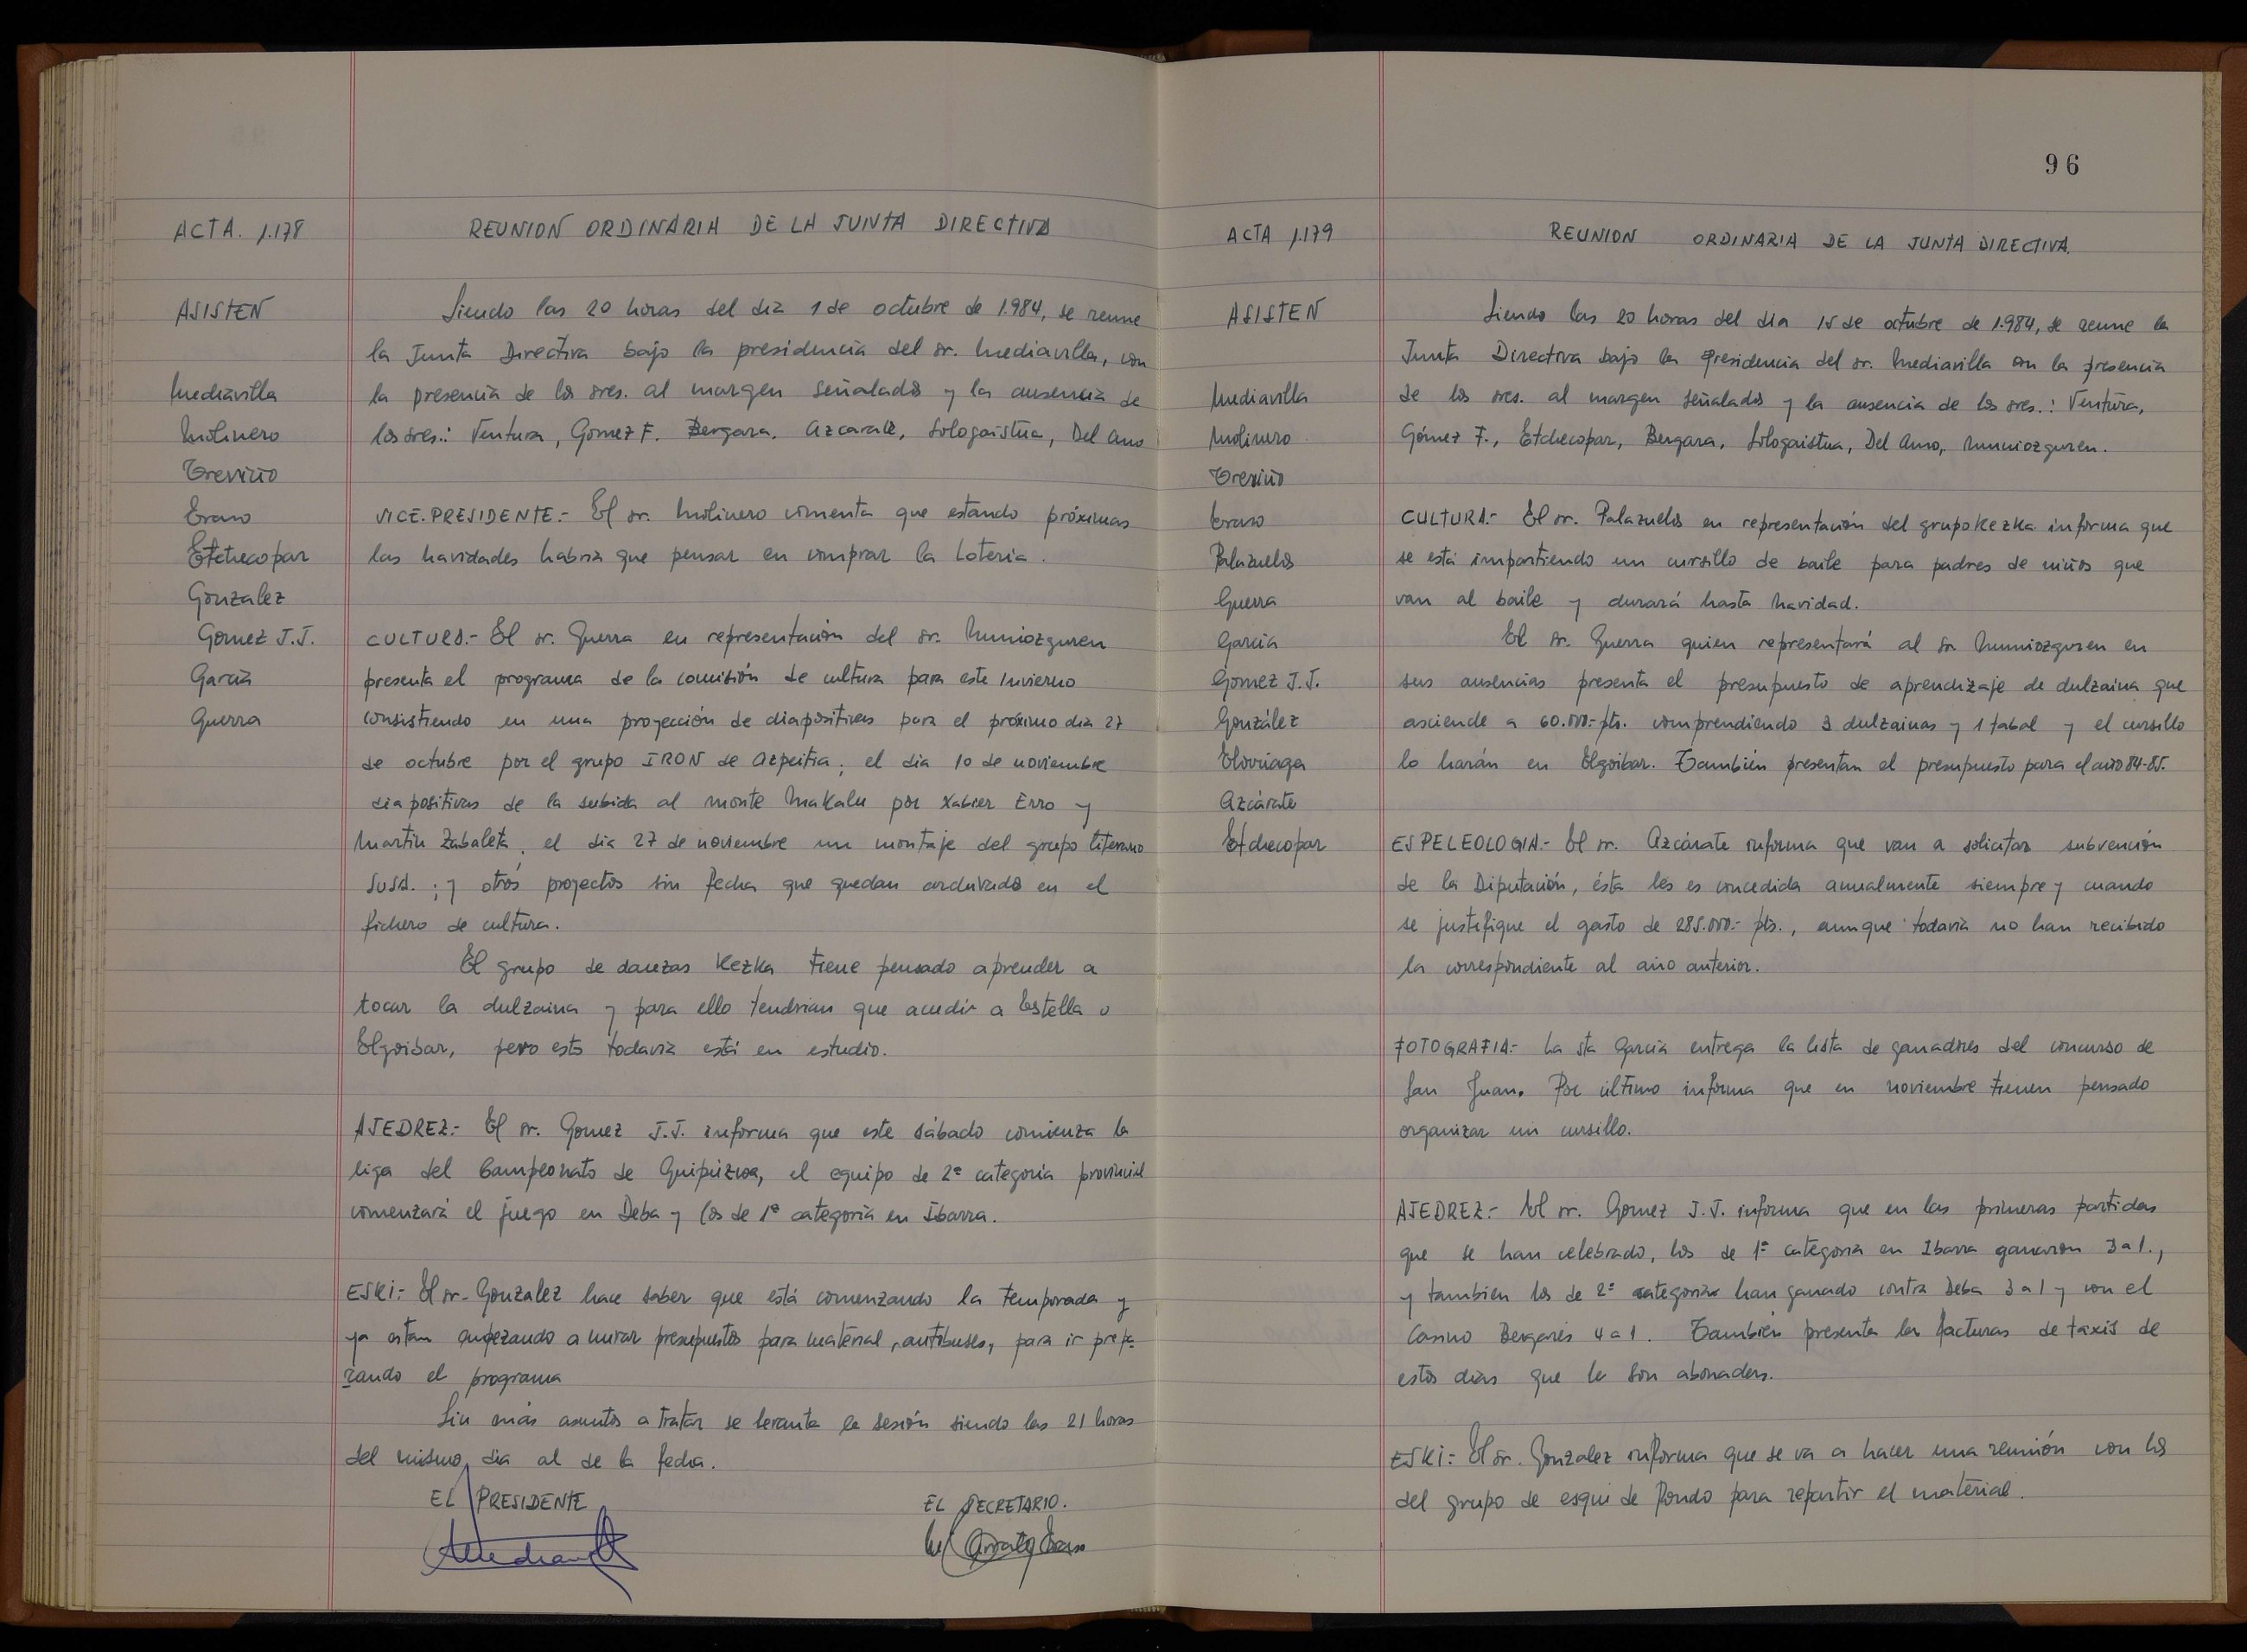 ACTA. 1.178
REUNION ORDINARIA DE LA JUNTA DIRECTIVA
ASISTEN
Mediavilla
Molinero
Treviño
Eraso
Etchecopar
Gonzalez
Gomez J.J.
García
Guerra
Siendo las 20 horas del dia 1 de octubre de 1.984, se reune
la Junta Directiva bajo la presidencia del sr. Mediavilla, con
la presencia de los sres. al margen señalados y la ausencia de
los sres.: Ventura, Gomez F. Bergara, Azcarate, Sologaistua, Del Amo
VICE.PRESIDENTE.- El sr. Molinero comenta que estando próximas
las Navidades habria que pensar en comprar la Loteria.
CULTURA.- El sr. Guerra en representación del sr. Muniozguren
presenta el programa de la comisión de cultura para este Invierno
consistiendo en una proyección de diapositivas para el próximo dia 27
de octubre por el grupo IRON de Azpeitia; el dia 10 de noviembre
diapositivas de la subida al monte Makalu por Xabier Erro y
Martin Zabaleta; el dia 27 de noviembre un montaje del grupo literario
SUSA.; y otros proyectos sin fecha que quedan archivados en el
fichero de cultura.
El grupo de danzas Kezka tiene pensado aprender a
tocar la dulzaina y para ello tendrian que acudir a Estella o
Elgoibar, pero esto todavia está en estudio.
AJEDREZ.- El sr. Gomez J.J. informa que este sábado comienza la
liga del Campeonato de Guipúzcoa, el equipo de 2ª categoria provincial
comenzará el juego en Deba y los de 1ª categoria en Ibarra.
ESKI:- El sr. Gonzalez hace saber que está comenzando la temporada y
ya estan empezando a mirar presupuestos para material, autobuses, para ir prepa
rando el programa
Sin más asuntos a tratar se levanta la sesión siendo las 21 horas
del mismo dia al de la fecha.
EL PRESIDENTE
EL SECRETARIO.
96
ACTA 1.179
REUNION ORDINARIA DE LA JUNTA DIRECTIVA.
ASISTEN
Mediavilla
Molinero
Treviño
Eraso
Palazuelos
Guerra
García
Gomez J.J.
González
Elorriaga
Azcárate
Etchecopar
Siendo las 20 horas del dia 15 de octubre de 1.984, se reune la
Junta Directiva bajo la presidencia del sr. Mediavilla con la presencia
de los sres. al margen señalados y la ausencia de los sres.: Ventura,
Gómez F., Etchecopar, Bergara, Sologaistua, Del Amo, Muniozguren.
CULTURA.- El sr. Palazuelos en representación del grupo Kezka informa que
se está impartiendo un cursillo de baile para padres de niños que
van al baile y durará hasta Navidad.
El sr. Guerra quien representará al sr Muniozguren en
sus ausencias presenta el presupuesto de aprendizaje de dulzaina que
asciende a 60.000.- pts. comprendiendo 3 dulzainas y 1 tabal y el cursillo
lo harán en Elgoibar. También presentan el presupuesto para el año 84-85.
ESPELEOLOGIA.- El sr. Azcárate informa que van a solicitar subvención
de la Diputación, ésta les es concedida anualmente siempre y cuando
se justifique el gasto de 285.000.- pts., aunque todavia no han recibido
la correspondiente al año anterior.
FOTOGRAFIA.- La sta García entrega la lista de ganadores del concurso de
San Juan. Por último informa que en noviembre tienen pensado
organizar un cursillo.
AJEDREZ.- El sr. Gomez J.J. informa que en las primeras partidas
que se han celebrado, los de 1ª categoria en Ibarra ganaron 3 a 1.,
y tambien los de 2ª categoria han ganado contra Deba 3 a 1 y con el
Casino Bergarés 4 a 1. También presenta las facturas de taxis de
estos dias que le son abonadas.
ESKI:- El sr. Gonzalez informa que se va a hacer una reunión con los
del grupo de esqui de fondo para repartir el material.